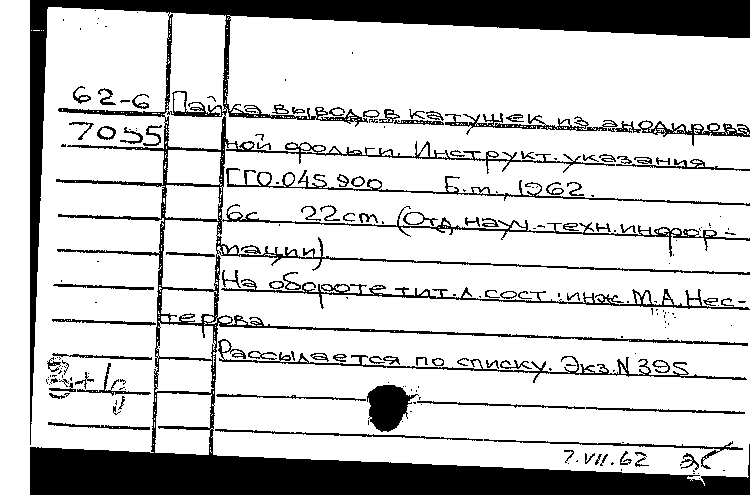 62-6 Пайка выводов катушек из анодирова
7055 ной фольги. Инструкт. указания.
ГГО.045.900 Б.м., 1962.
6с 22см. (Отд. науч.-техн. инфор-
мации)
На обороте тит. л. сост.: инж. М.А. Нес-
терова.
Рассылается по списку. Экз. N 395.
7.VII.62